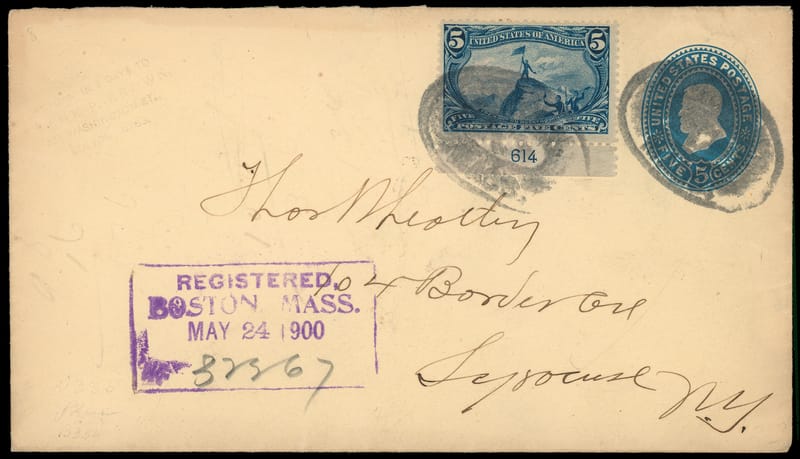 5 UNITED STATES OF AMERICA 5
FIVE FIVE
POSTAGE FIVE CENTS
614
UNITED STATES POSTAGE
FIVE 5 CENTS
Thos Wheatley
104 Borden Ave
Syracuse N.Y.
REGISTERED,
BOSTON MASS.
MAY 24 1900
32367